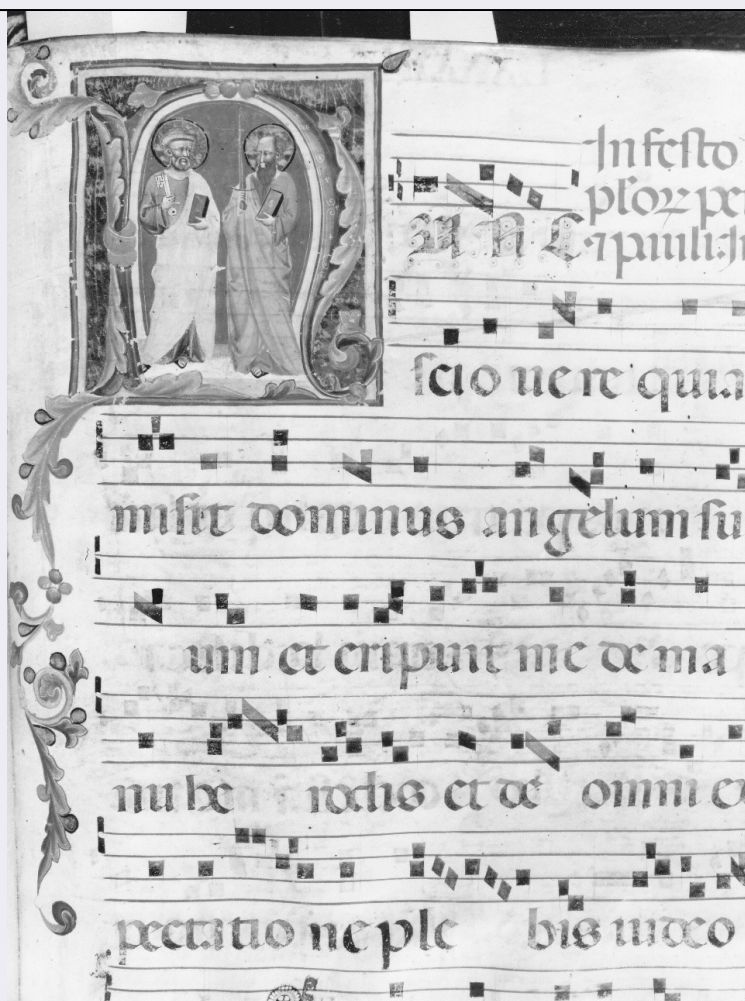 In festo
plorꝝ pe
UNC
⁊ pauli. In
scio uere quia
misit dominus angelum su
um et eripuit me de ma
nu he rodis et de omni ex
pectatio ne ple bis iudeo